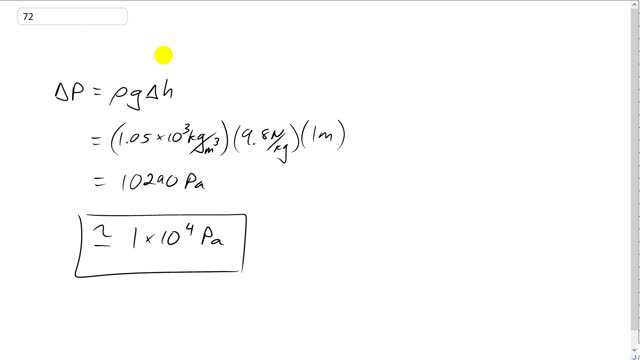 72
ΔP = ρgΔh
= (1.05 × 10³ kg/m³)(9.8 N/kg)(1m)
= 10290 Pa
≃ 1 × 10⁴ Pa